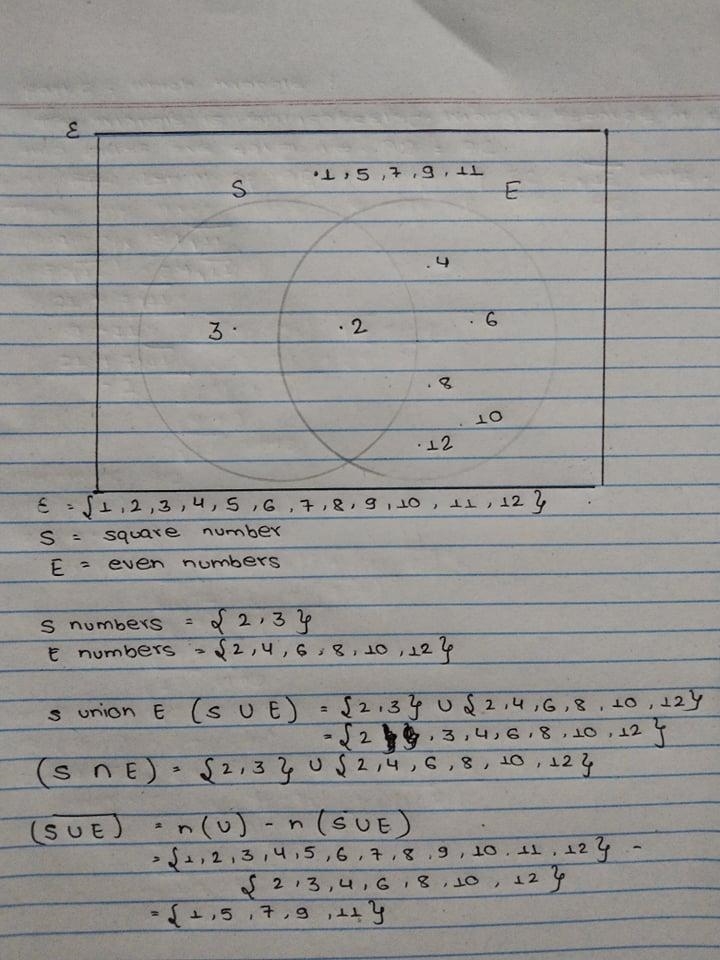 ε
•1, 5, 7, 9, 11
S
E
.4
3 .
. 2
. 6
. 8
. 10
. 12
ε = {1, 2, 3, 4, 5, 6, 7, 8, 9, 10, 11, 12}
S = square number
E = even numbers
S numbers = {2, 3}
E numbers = {2, 4, 6, 8, 10, 12}
S union E (S ∪ E) = {2, 3} ∪ {2, 4, 6, 8, 10, 12}
= {2, 3, 4, 6, 8, 10, 12}
(S ∩ E) = {2, 3} ∪ {2, 4, 6, 8, 10, 12}
(S̅ ̅∪̅ ̅E̅) = n(U) - n(S ∪ E)
= {1, 2, 3, 4, 5, 6, 7, 8, 9, 10, 11, 12} -
{2, 3, 4, 6, 8, 10, 12}
= {1, 5, 7, 9, 11}